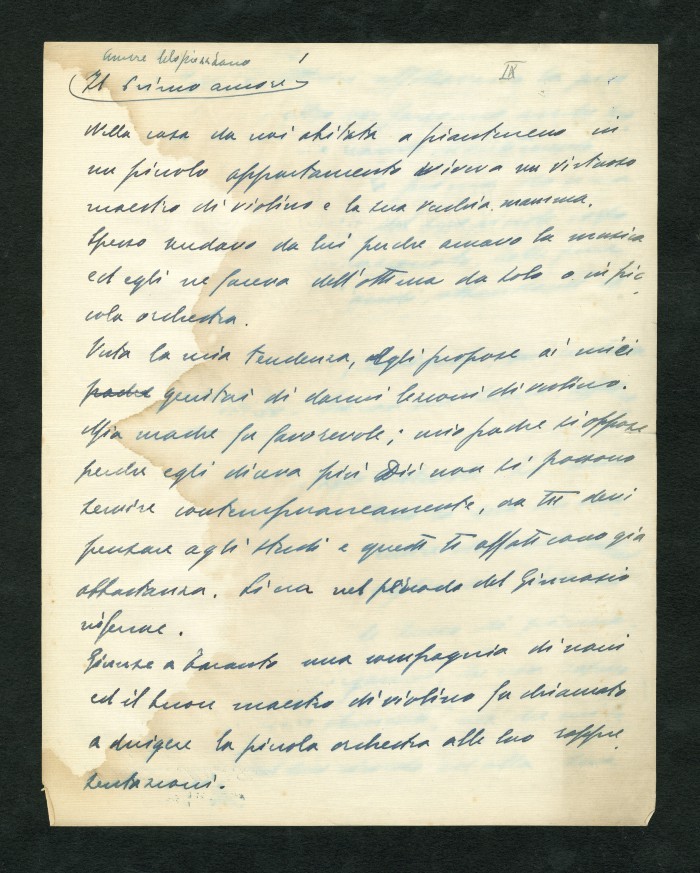 Amore lillipuziano
IX
Il Primo amore
Nella casa da noi abitata a pianterreno in
un piccolo appartamento viveva un virtuoso
maestro di violino e la sua vecchia mamma.
Spesso andavo da lui perchè amavo la musica
ed egli ne faceva dell'ottima da solo o in pic-
cola orchestra.
Vista la mia tendenza, Egli propose ai miei
padre genitori di darmi lezioni di violino.
Mia madre fu favorevole; mio padre si oppose
perchè egli diceva più Dii non si possono
servire contemporaneamente, ora tu devi
pensare agli studi e questi ti affaticano già
abbastanza. Si era nel periodo del Ginnasio
inferiore.
Giunse a Taranto una compagnia di nani
ed il buon maestro di violino fu chiamato
a dirigere la piccola orchestra alle loro rappre-
sentazioni.